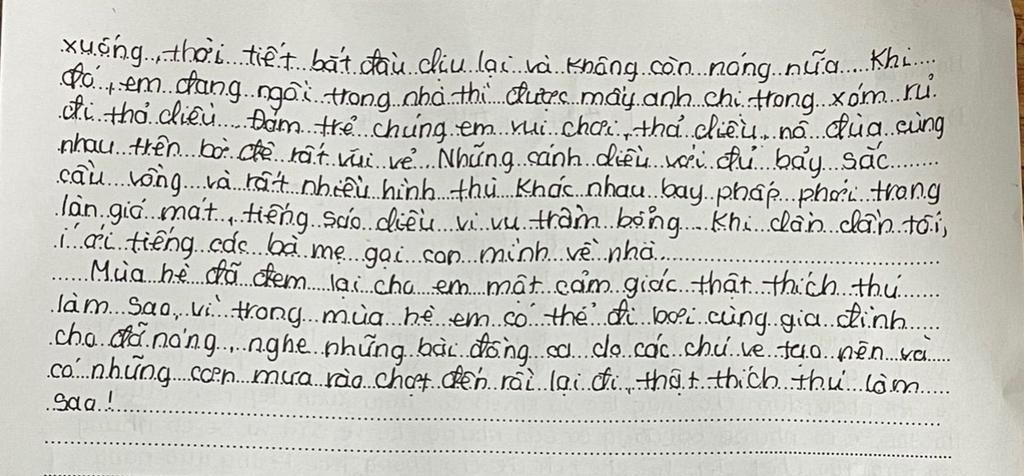 xuống, thời tiết bắt đầu dịu lại và không còn nóng nữa. Khi
đó, em đang ngồi trong nhà thì được mấy anh chị trong xóm rủ
đi thả diều. Đám trẻ chúng em vui chơi, thả diều, nô đùa cùng
nhau trên bờ đê rất vui vẻ. Những cánh diều với đủ bảy sắc
cầu vồng và rất nhiều hình thù khác nhau bay phấp phới trong
làn gió mát, tiếng sáo diều vi vu trầm bổng. Khi dần dần tối,
í ới tiếng các bà mẹ gọi con mình về nhà.
Mùa hè đã đem lại cho em một cảm giác thật thích thú
làm sao, vì trong mùa hè em có thể đi bơi cùng gia đình
cho đỡ nóng, nghe những bài đồng ca do các chú ve tạo nên và
có những cơn mưa rào chợt đến rồi lại đi, thật thích thú làm
sao!